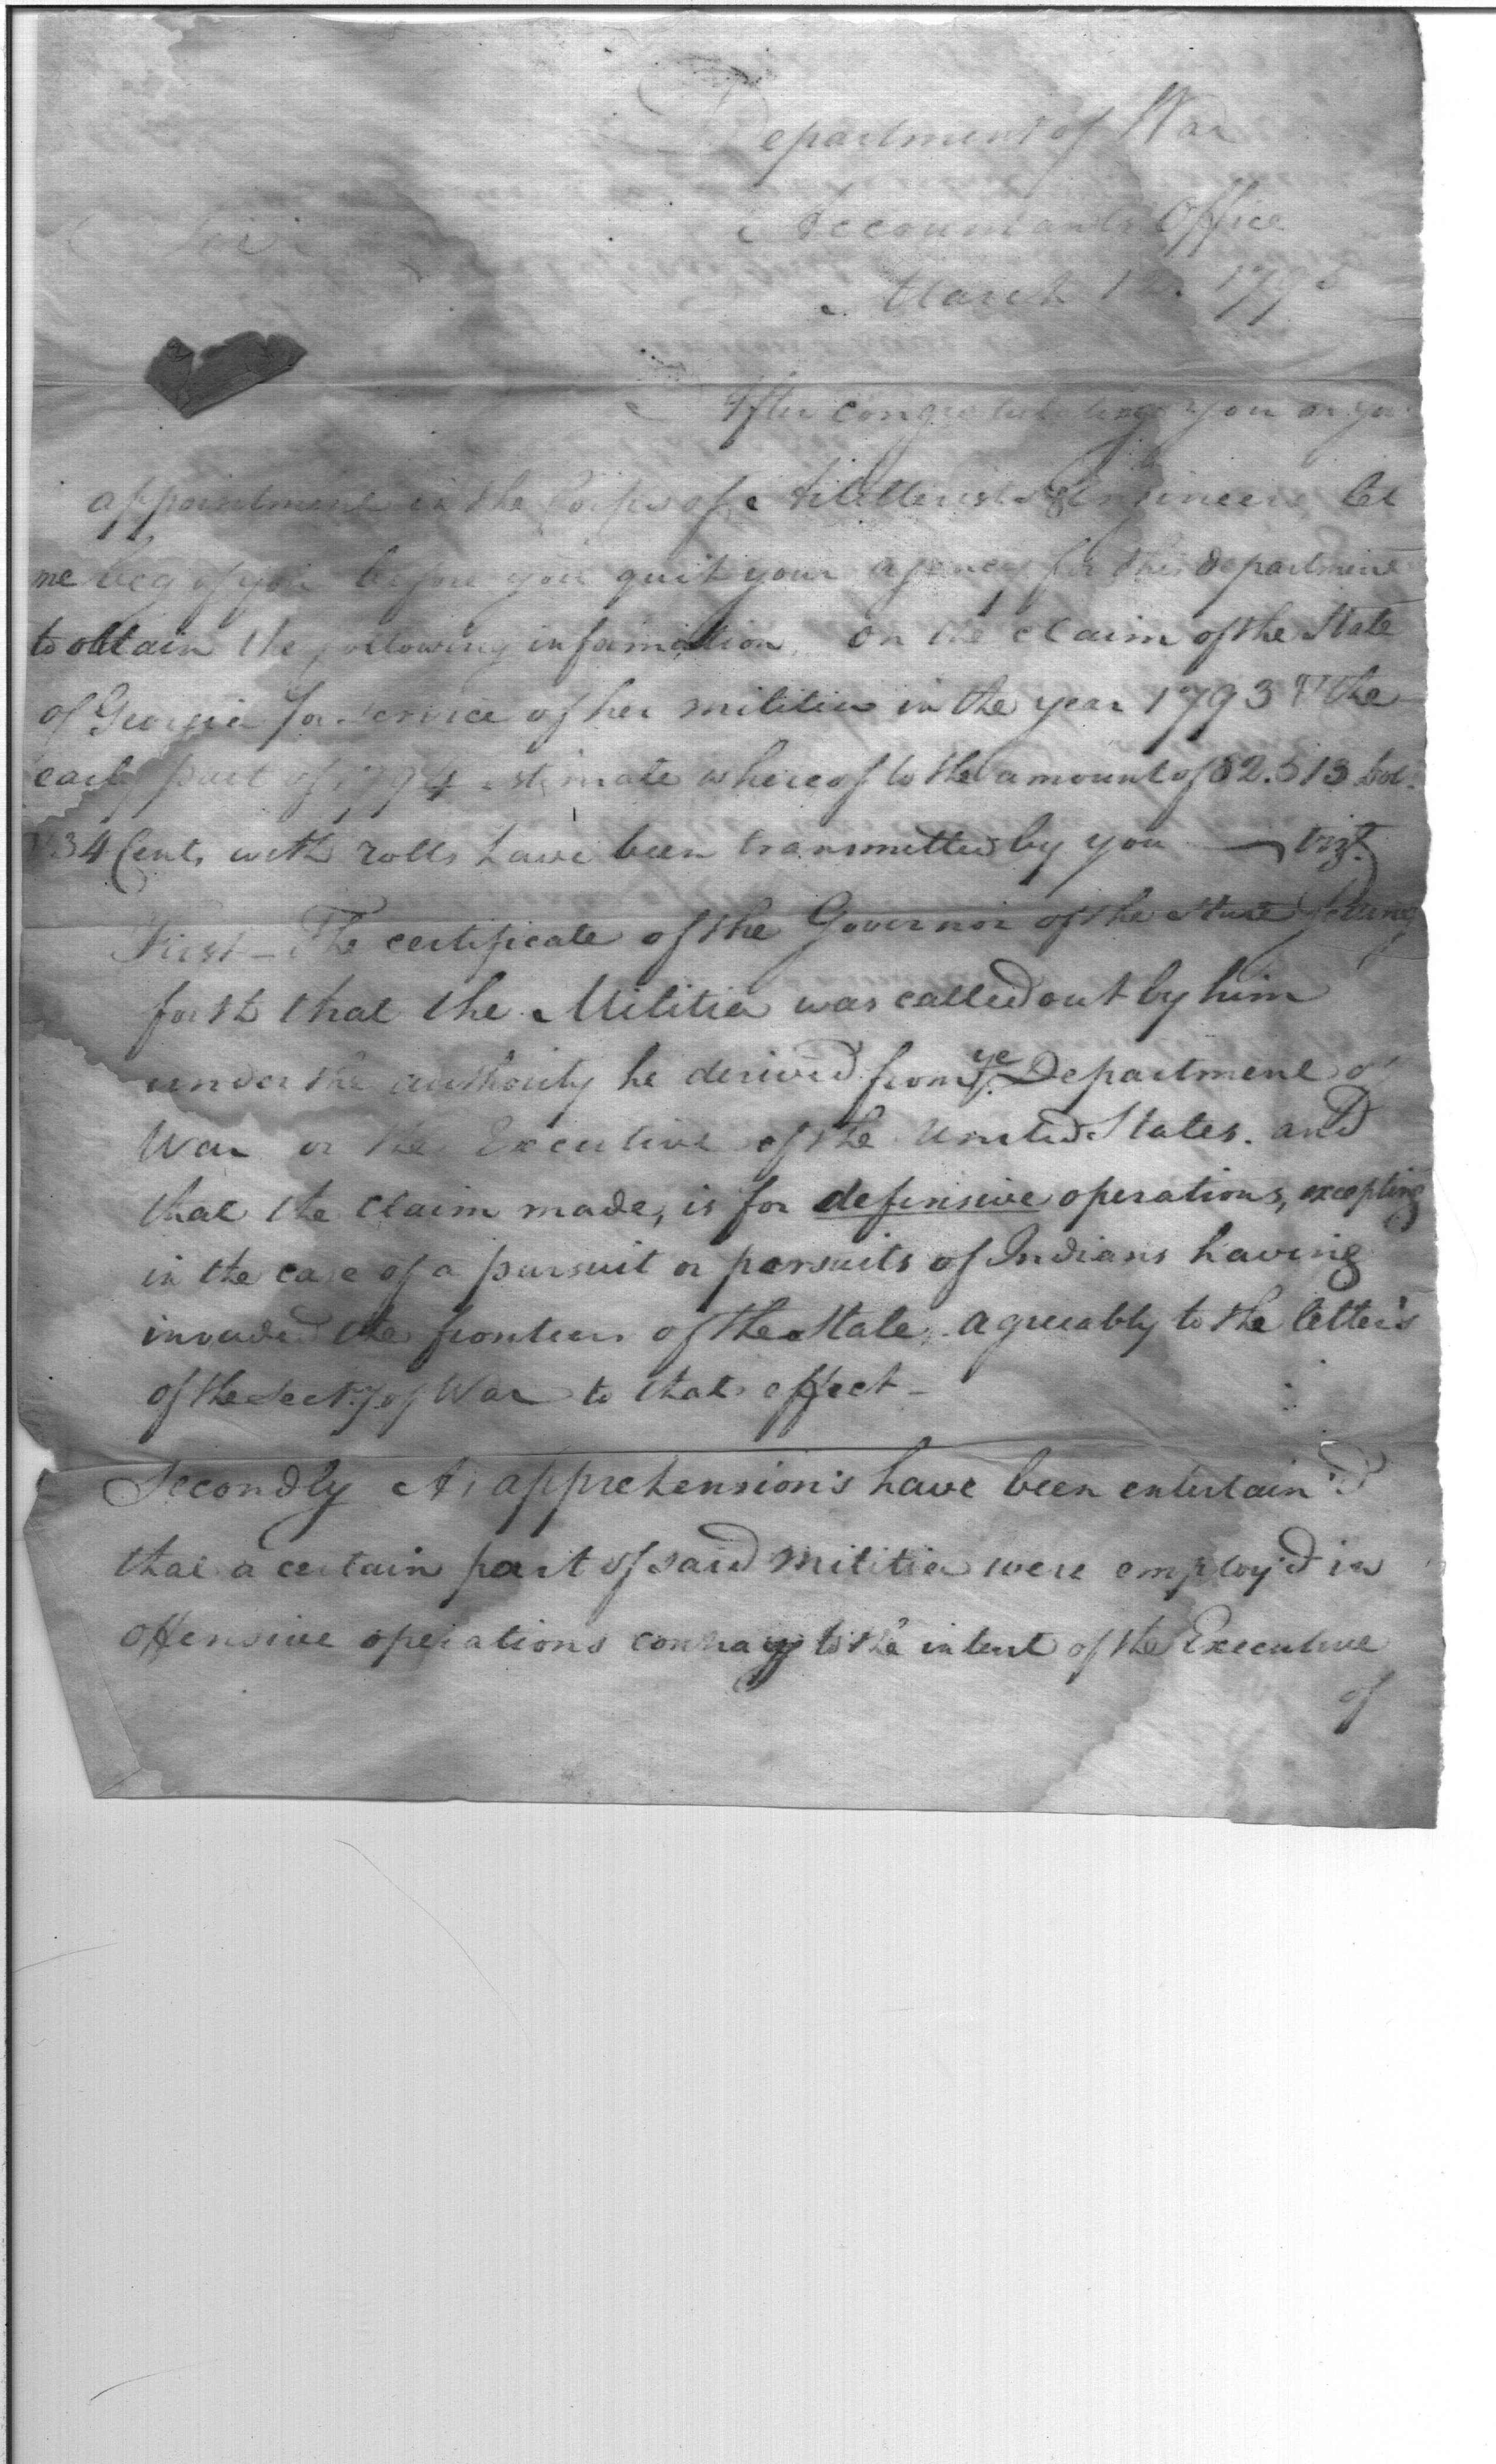 Department of War
Accountants Office
Sir
March 12. 179
After congratulating you on your
appointment in the Corps of Artillerists & Engineers let
me beg of you before you quit your agency for this department
to obtain the following information, on the claim of the State
of Georgia for service of her militia in the year 1793 & the
early part of 1794 estimate whereof to the amount of 82.513 Dol.
34 Cents with rolls have been transmitted by you — vizt.
First — The certificate of the Governor of the State setting
forth that the Militia was called out by him
under the authority he derived from ye Department of
War or the Executive of the United States. and
that the claim made, is for defensive operations, excepting
in the case of a pursuit or persuits of Indians having
invaded the frontiers of the State, agreeably to the letter's
of the Sect.y of War to that effect —
Secondly As apprehension's have been entertain'd
that a certain part of said Militia were employ'd in
offensive operations contrary to the intent of the Executive
of